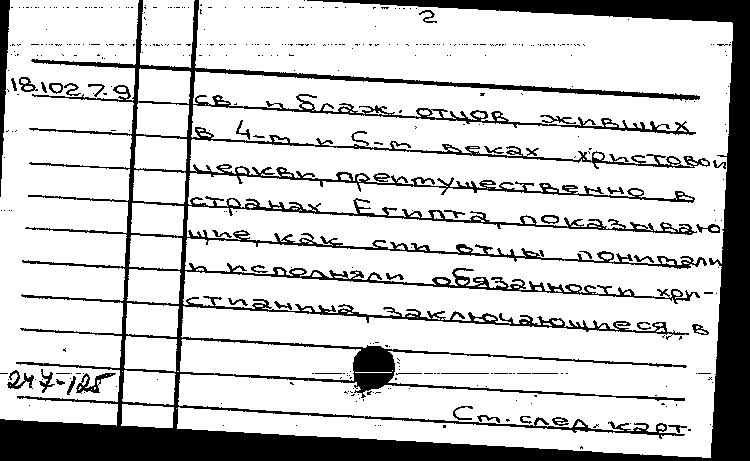 2
18.102.7.9
св. и блаж. отцов, живших
в 4-м и 5-м веках христовой
церкви, преимущественно в
странах Египта, показываю
щие, как сии отцы понимали
и исполняли обязанности хри-
стианина, заключающиеся в
247-125
См. след. карт.